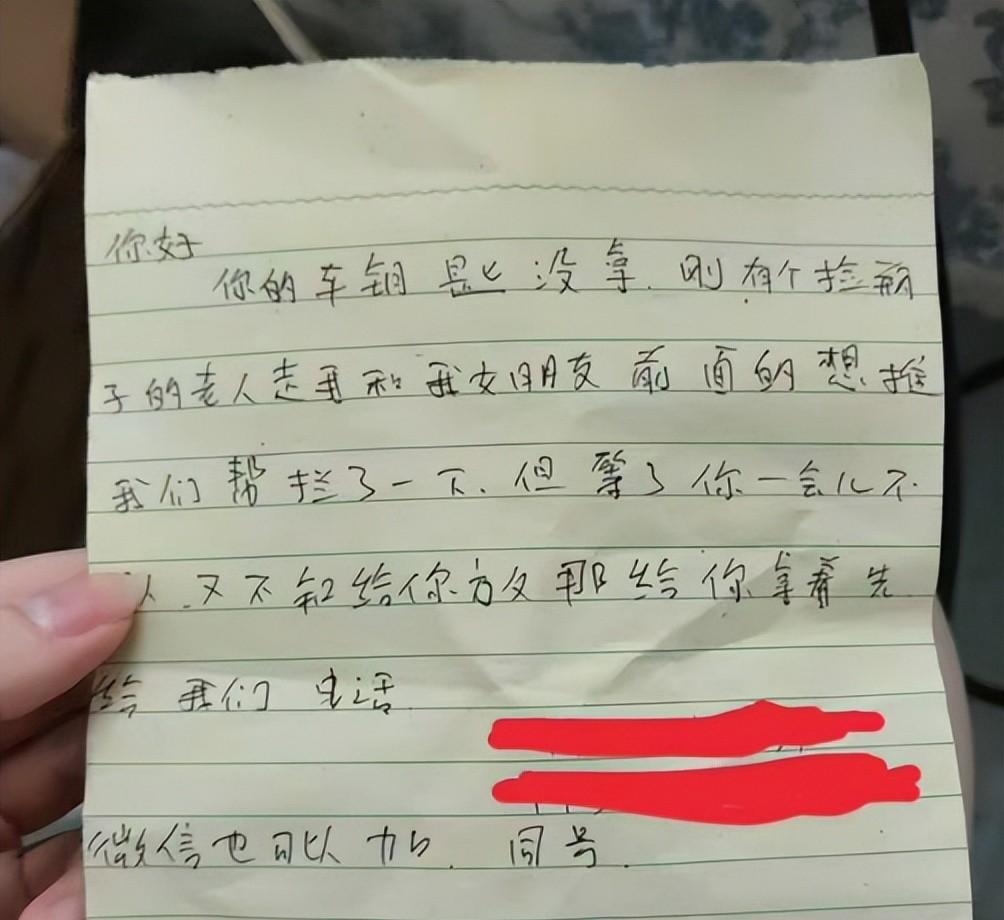 你好
你的车钥匙没拿.刚有个捡瓶
子的老人走我和我女朋友前面的想推
我们帮拦了一下.但等了你一会儿不
又不知给你放那给你拿着先
给我们 电话
微信也可以加.同号.